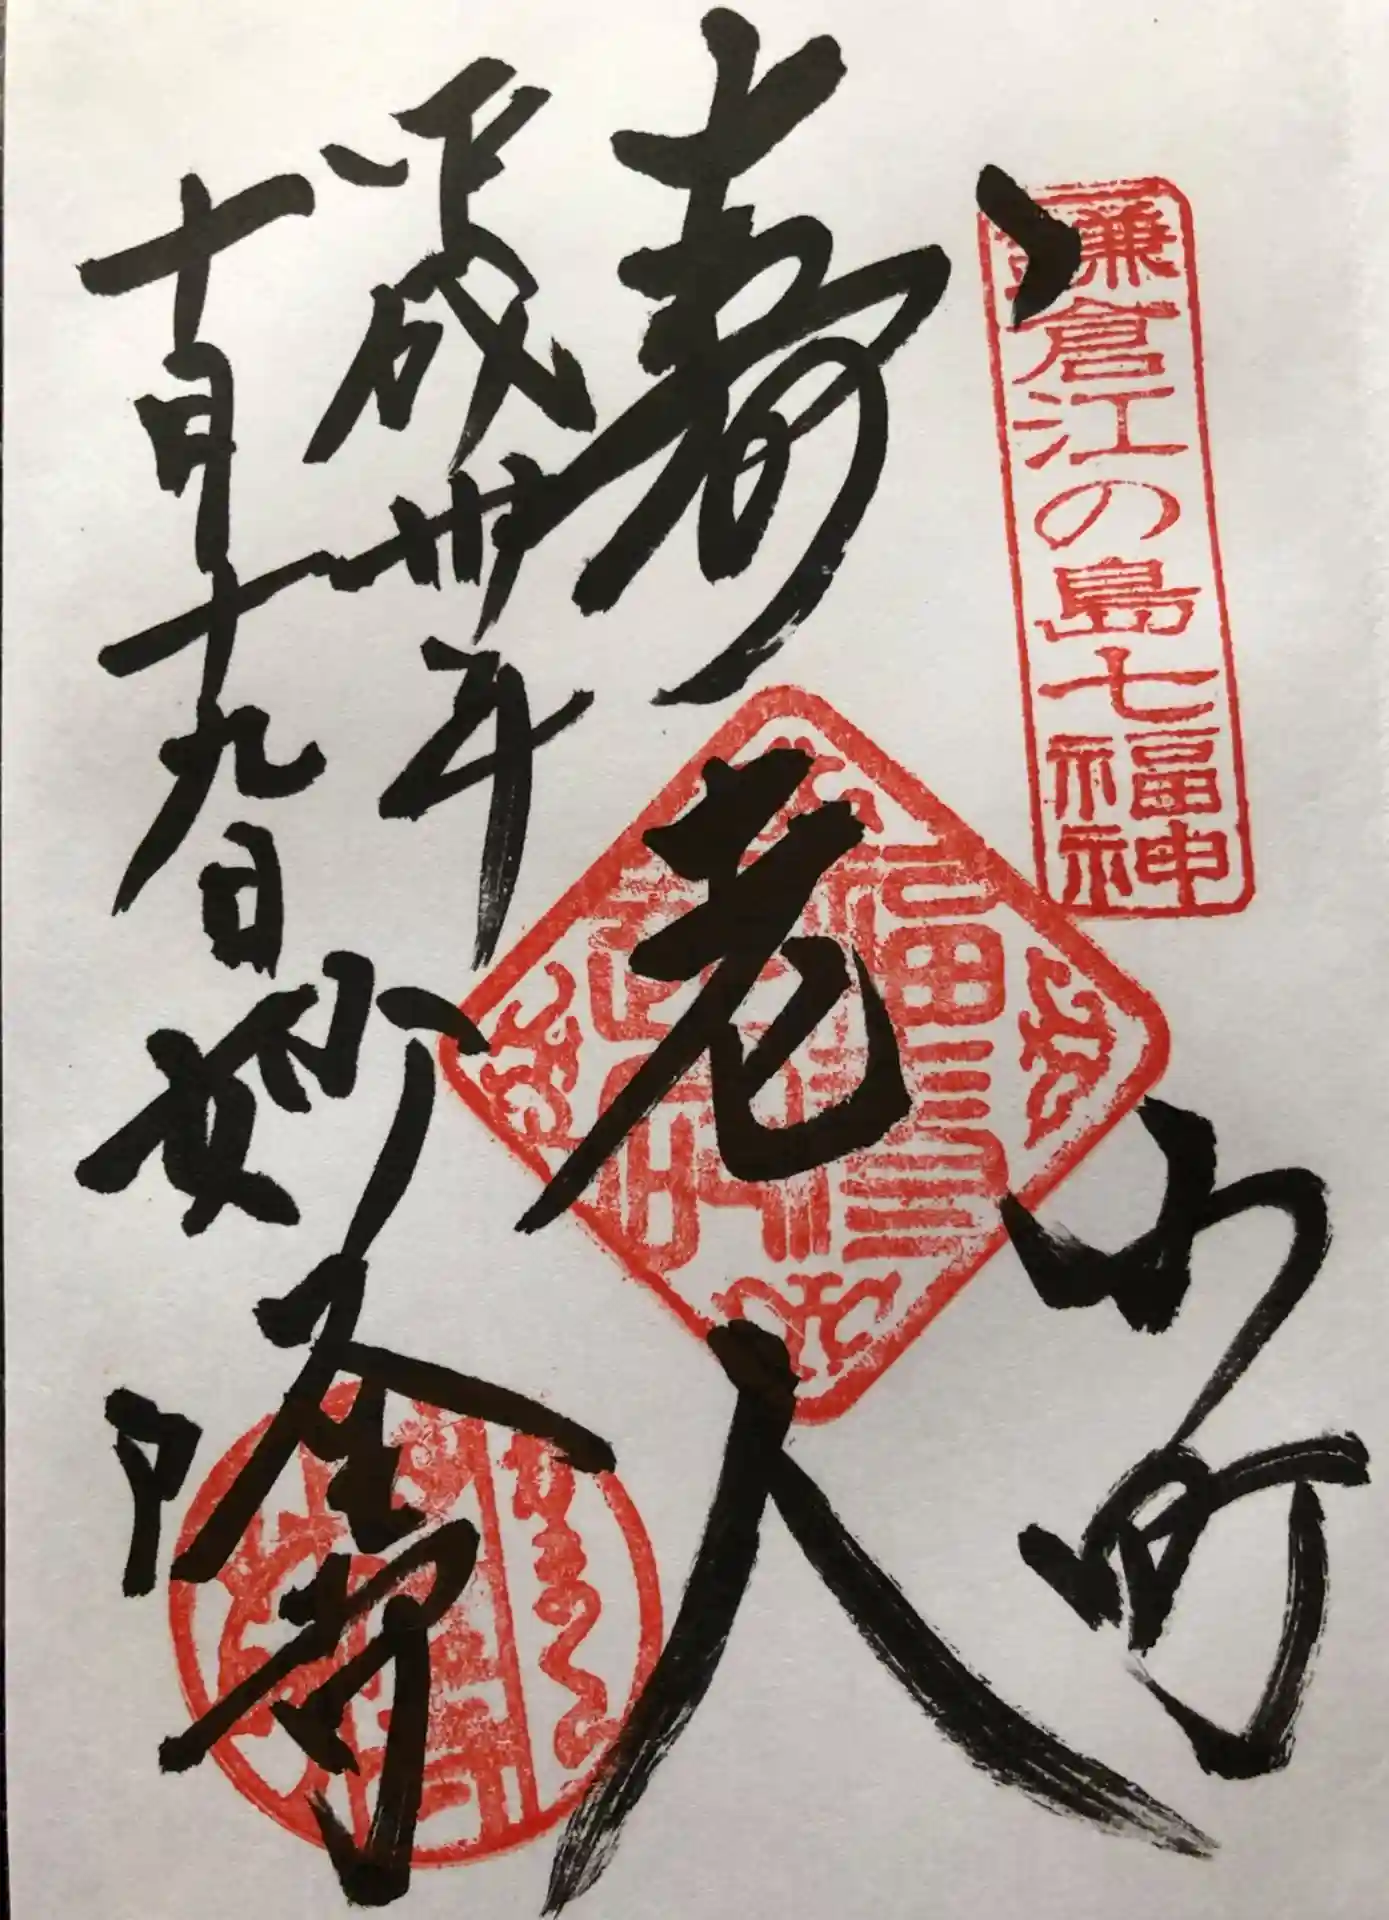 鎌倉江の島七福神
小町
寿老人
平成卅年
十月十九日 妙隆寺